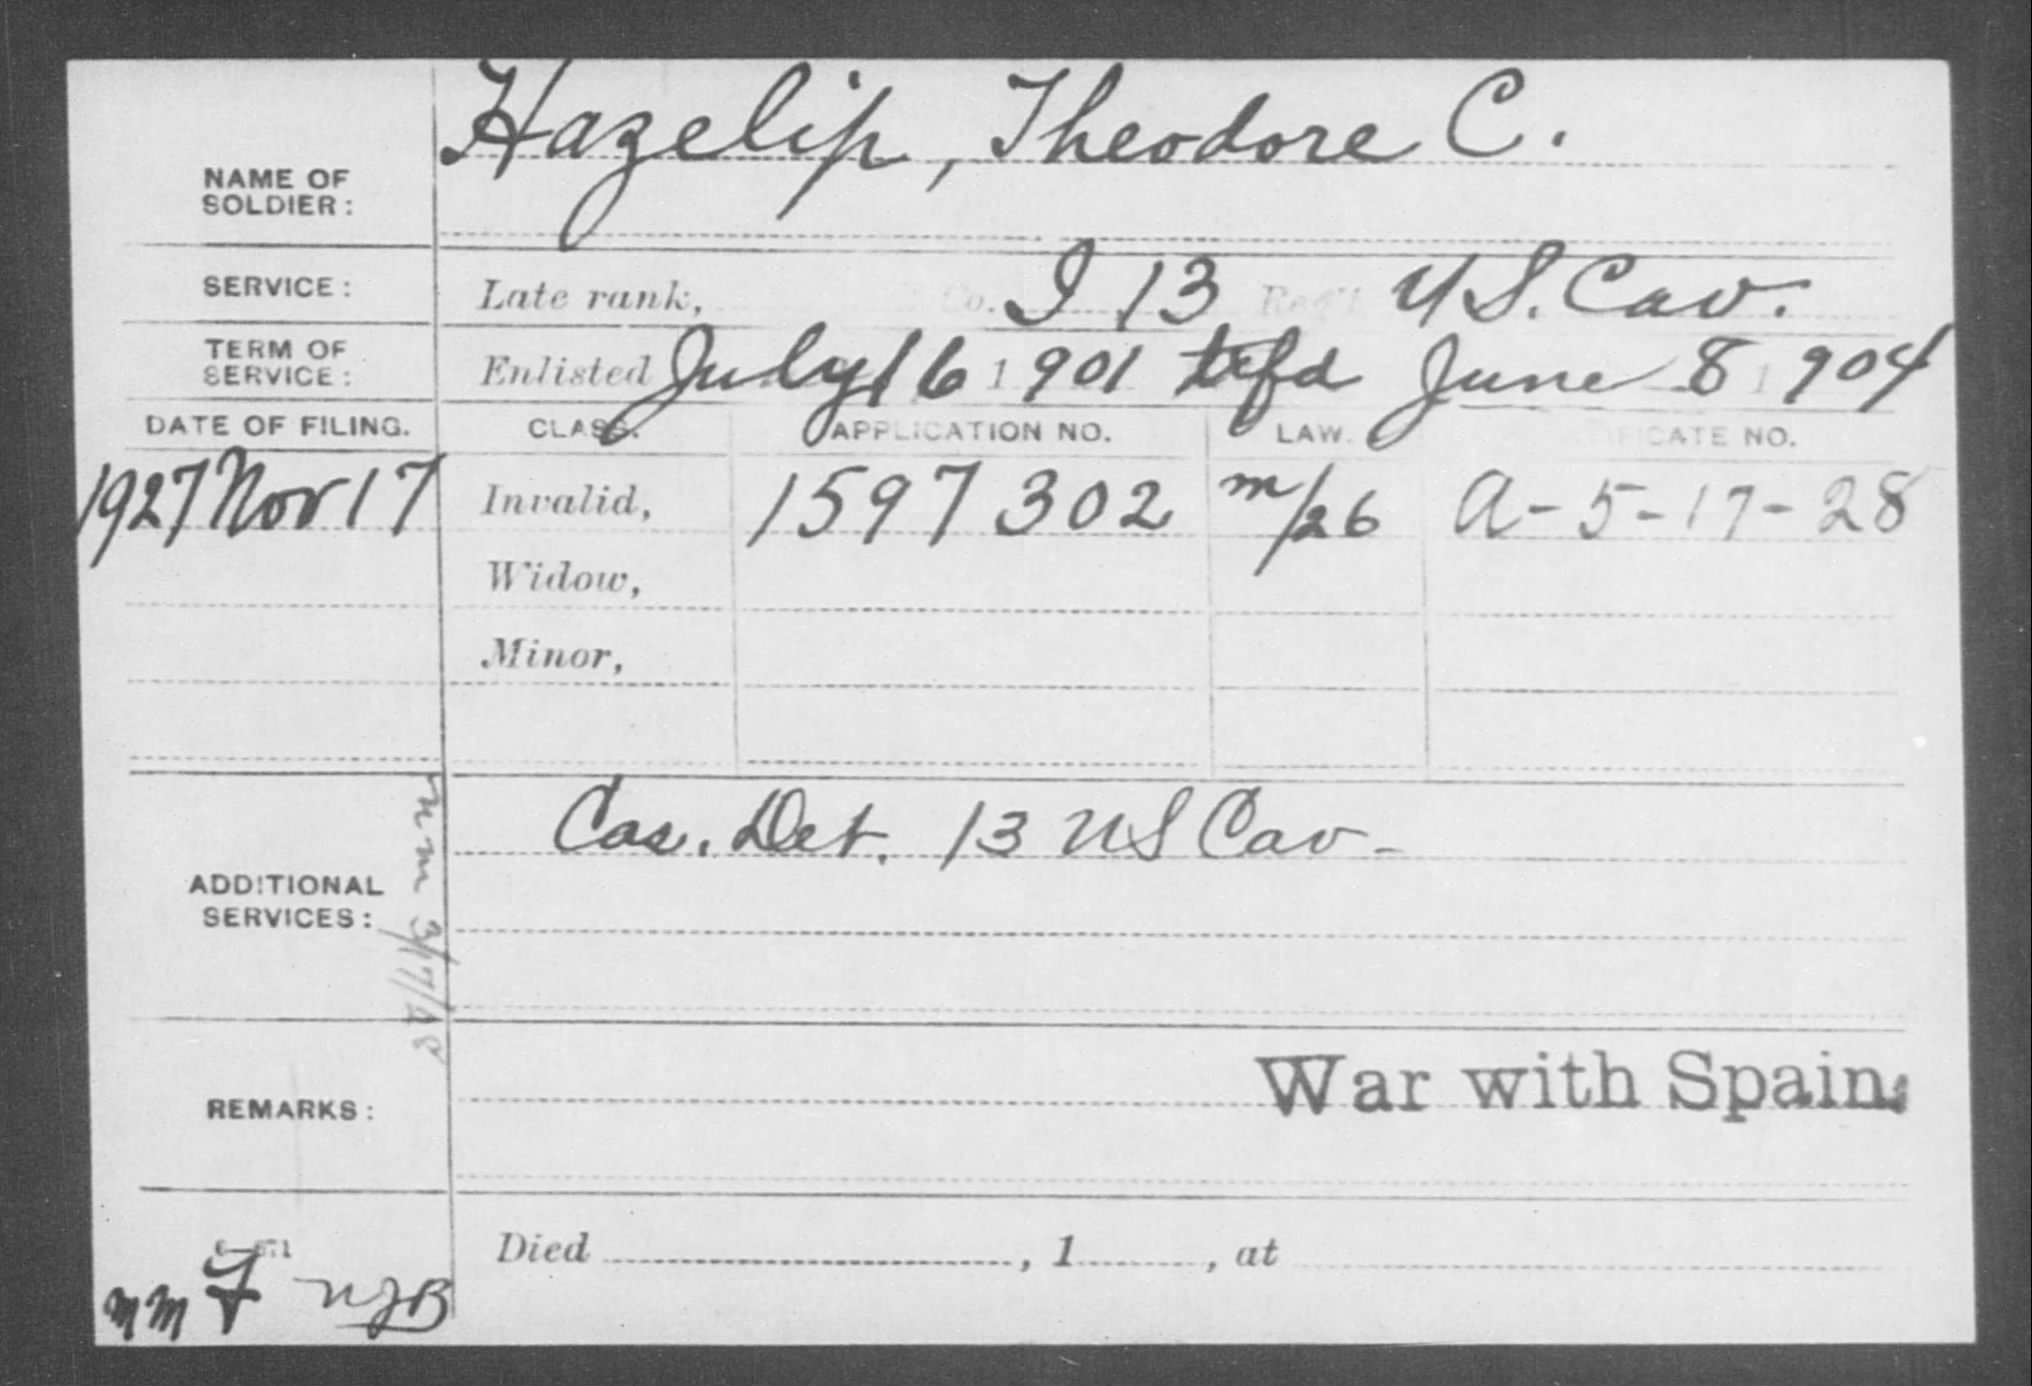 NAME OF SOLDIER: Hazelip, Theodore C.
SERVICE: Late rank, Co. I 13 Reg't U S. Cav.
TERM OF SERVICE: Enlisted July 16 1901 trfd June 8 1904
DATE OF FILING. CLASS. APPLICATION NO. LAW. FICATE NO.
1927 Nov 17 Invalid, 1597302 m/26 A-5-17-28
Widow,
Minor,
ADDITIONAL SERVICES: Cas. Det. 13 US Cav-
REMARKS: War with Spain.
Died , 1 , at
mm NJB